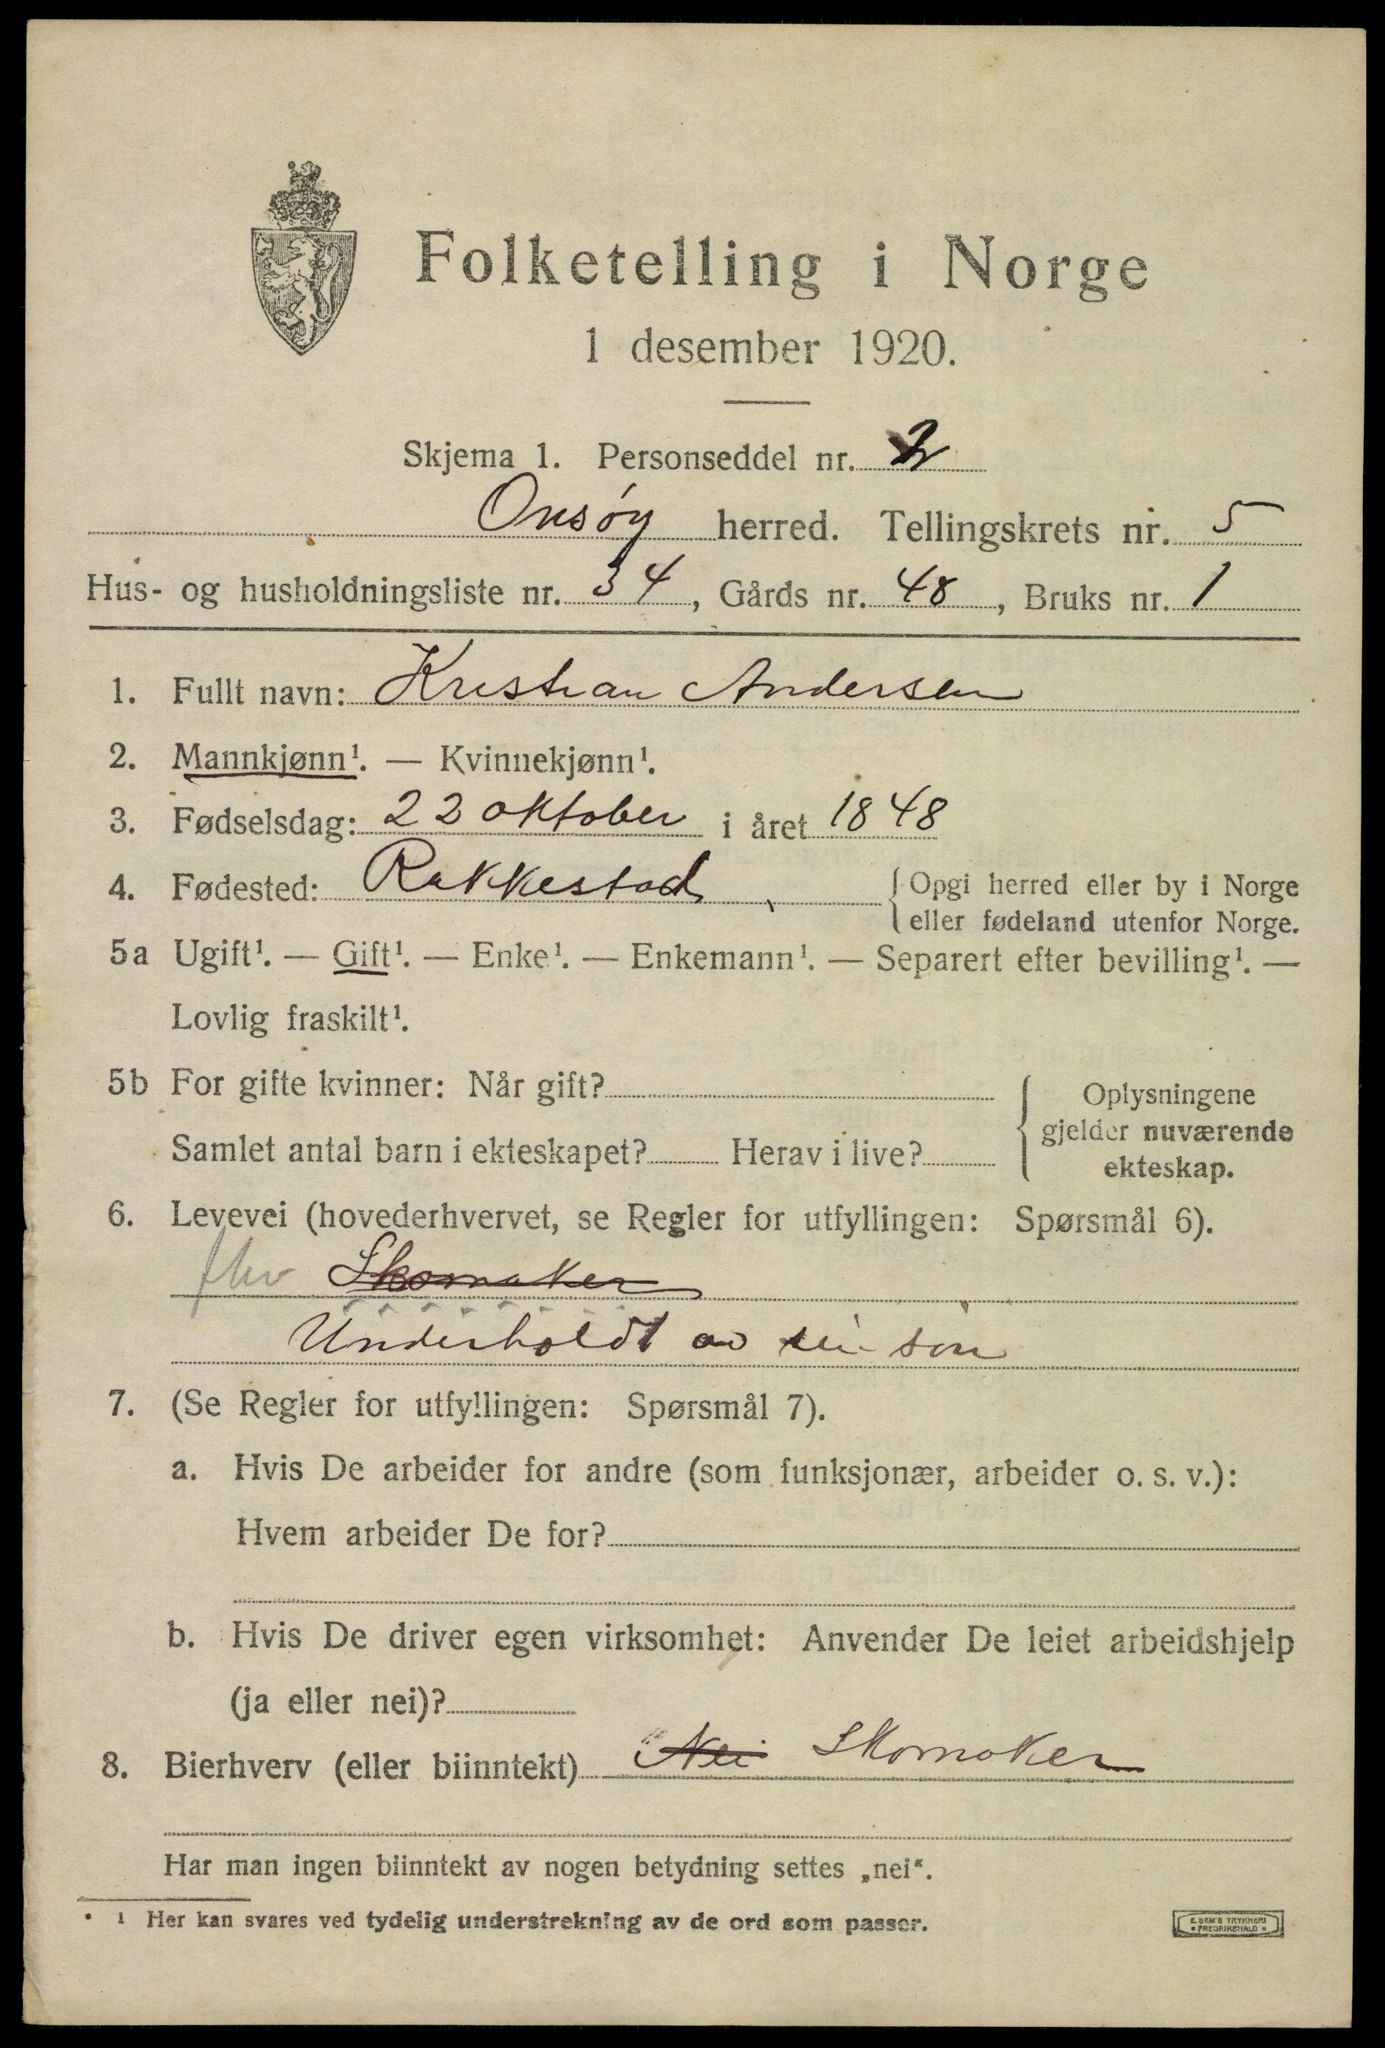 Folketelling i Norge
1 desember 1920.
Skjema 1. Personseddel nr. 2
Onsøy herred. Tellingskrets nr. 5
Hus- og husholdningsliste nr. 34, Gårds nr. 48, Bruks nr. 1
1. Fullt navn: Kristian Andersen
2. Mannkjønn¹. — Kvinnekjønn¹.
3. Fødselsdag: 22 oktober i året 1848
4. Fødested: Rakkestad
{Opgi herred eller by i Norge
eller fødeland utenfor Norge.
5a Ugift¹. — Gift¹. — Enke¹. — Enkemann¹. — Separert efter bevilling¹. —
Lovlig fraskilt¹.
5b For gifte kvinner: Når gift?
Samlet antal barn i ekteskapet? Herav i live?
Oplysningene
gjelder nuværende
ekteskap.
6. Levevei (hovederhvervet, se Regler for utfyllingen: Spørsmål 6).
fhv Skomaker
Underholdt av sin søn
7. (Se Regler for utfyllingen: Spørsmål 7).
a. Hvis De arbeider for andre (som funksjonær, arbeider o. s. v.):
Hvem arbeider De for?
b. Hvis De driver egen virksomhet: Anvender De leiet arbeidshjelp
(ja eller nei)?
8. Bierhverv (eller biinntekt) Nei Skomaker
Har man ingen biinntekt av nogen betydning settes „nei“.
¹ Her kan svares ved tydelig understrekning av de ord som passer.
E. SEM'S TRYKKERI
• FREDRIKSHALD •